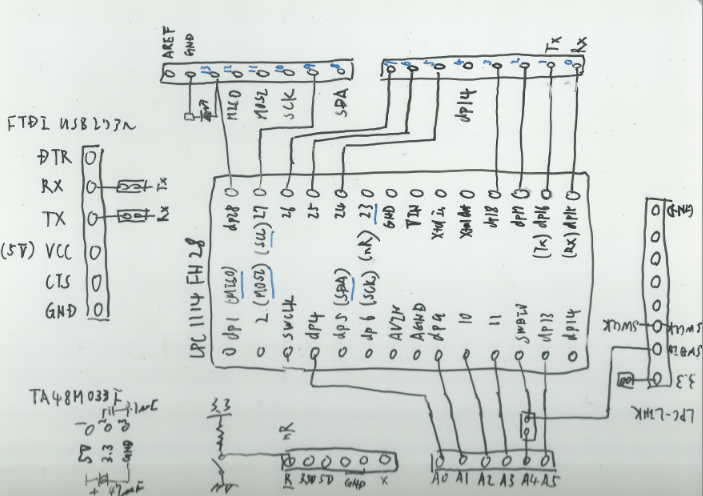 AREF
GND
13 12 11 10 9 8
MISO
MOSI
SCK
SDA
7 6 5 4 3 2 1 0
dp14
Tx
Rx
FTDI USB
DTR
RX
Tx
TX
Rx
(5V) VCC
CTS
GND
LPC 1114 FH 28
dp28
27
26
25
24
23
GND
VIN
xtalin
xtalout
dp18
dp17
dp16
dp15
(SCL)
(nR)
(Tx)
(Rx)
dp1 (MISO)
2 (MOSI)
SWCLK
dp4
dp5 (SDA)
dp6 (SCK)
AVIN
AGND
dp9
10
11
SWDIO
dp13
dp14
GND
SWCLK
SWCLK
SWDIO
3.3
LPC-LINK
TA48M033F
1 2 3
5V
3.3
GND
47mF
3.3
nR
R 3.3V 5V GND X
A0 A1 A2 A3 A4 A5